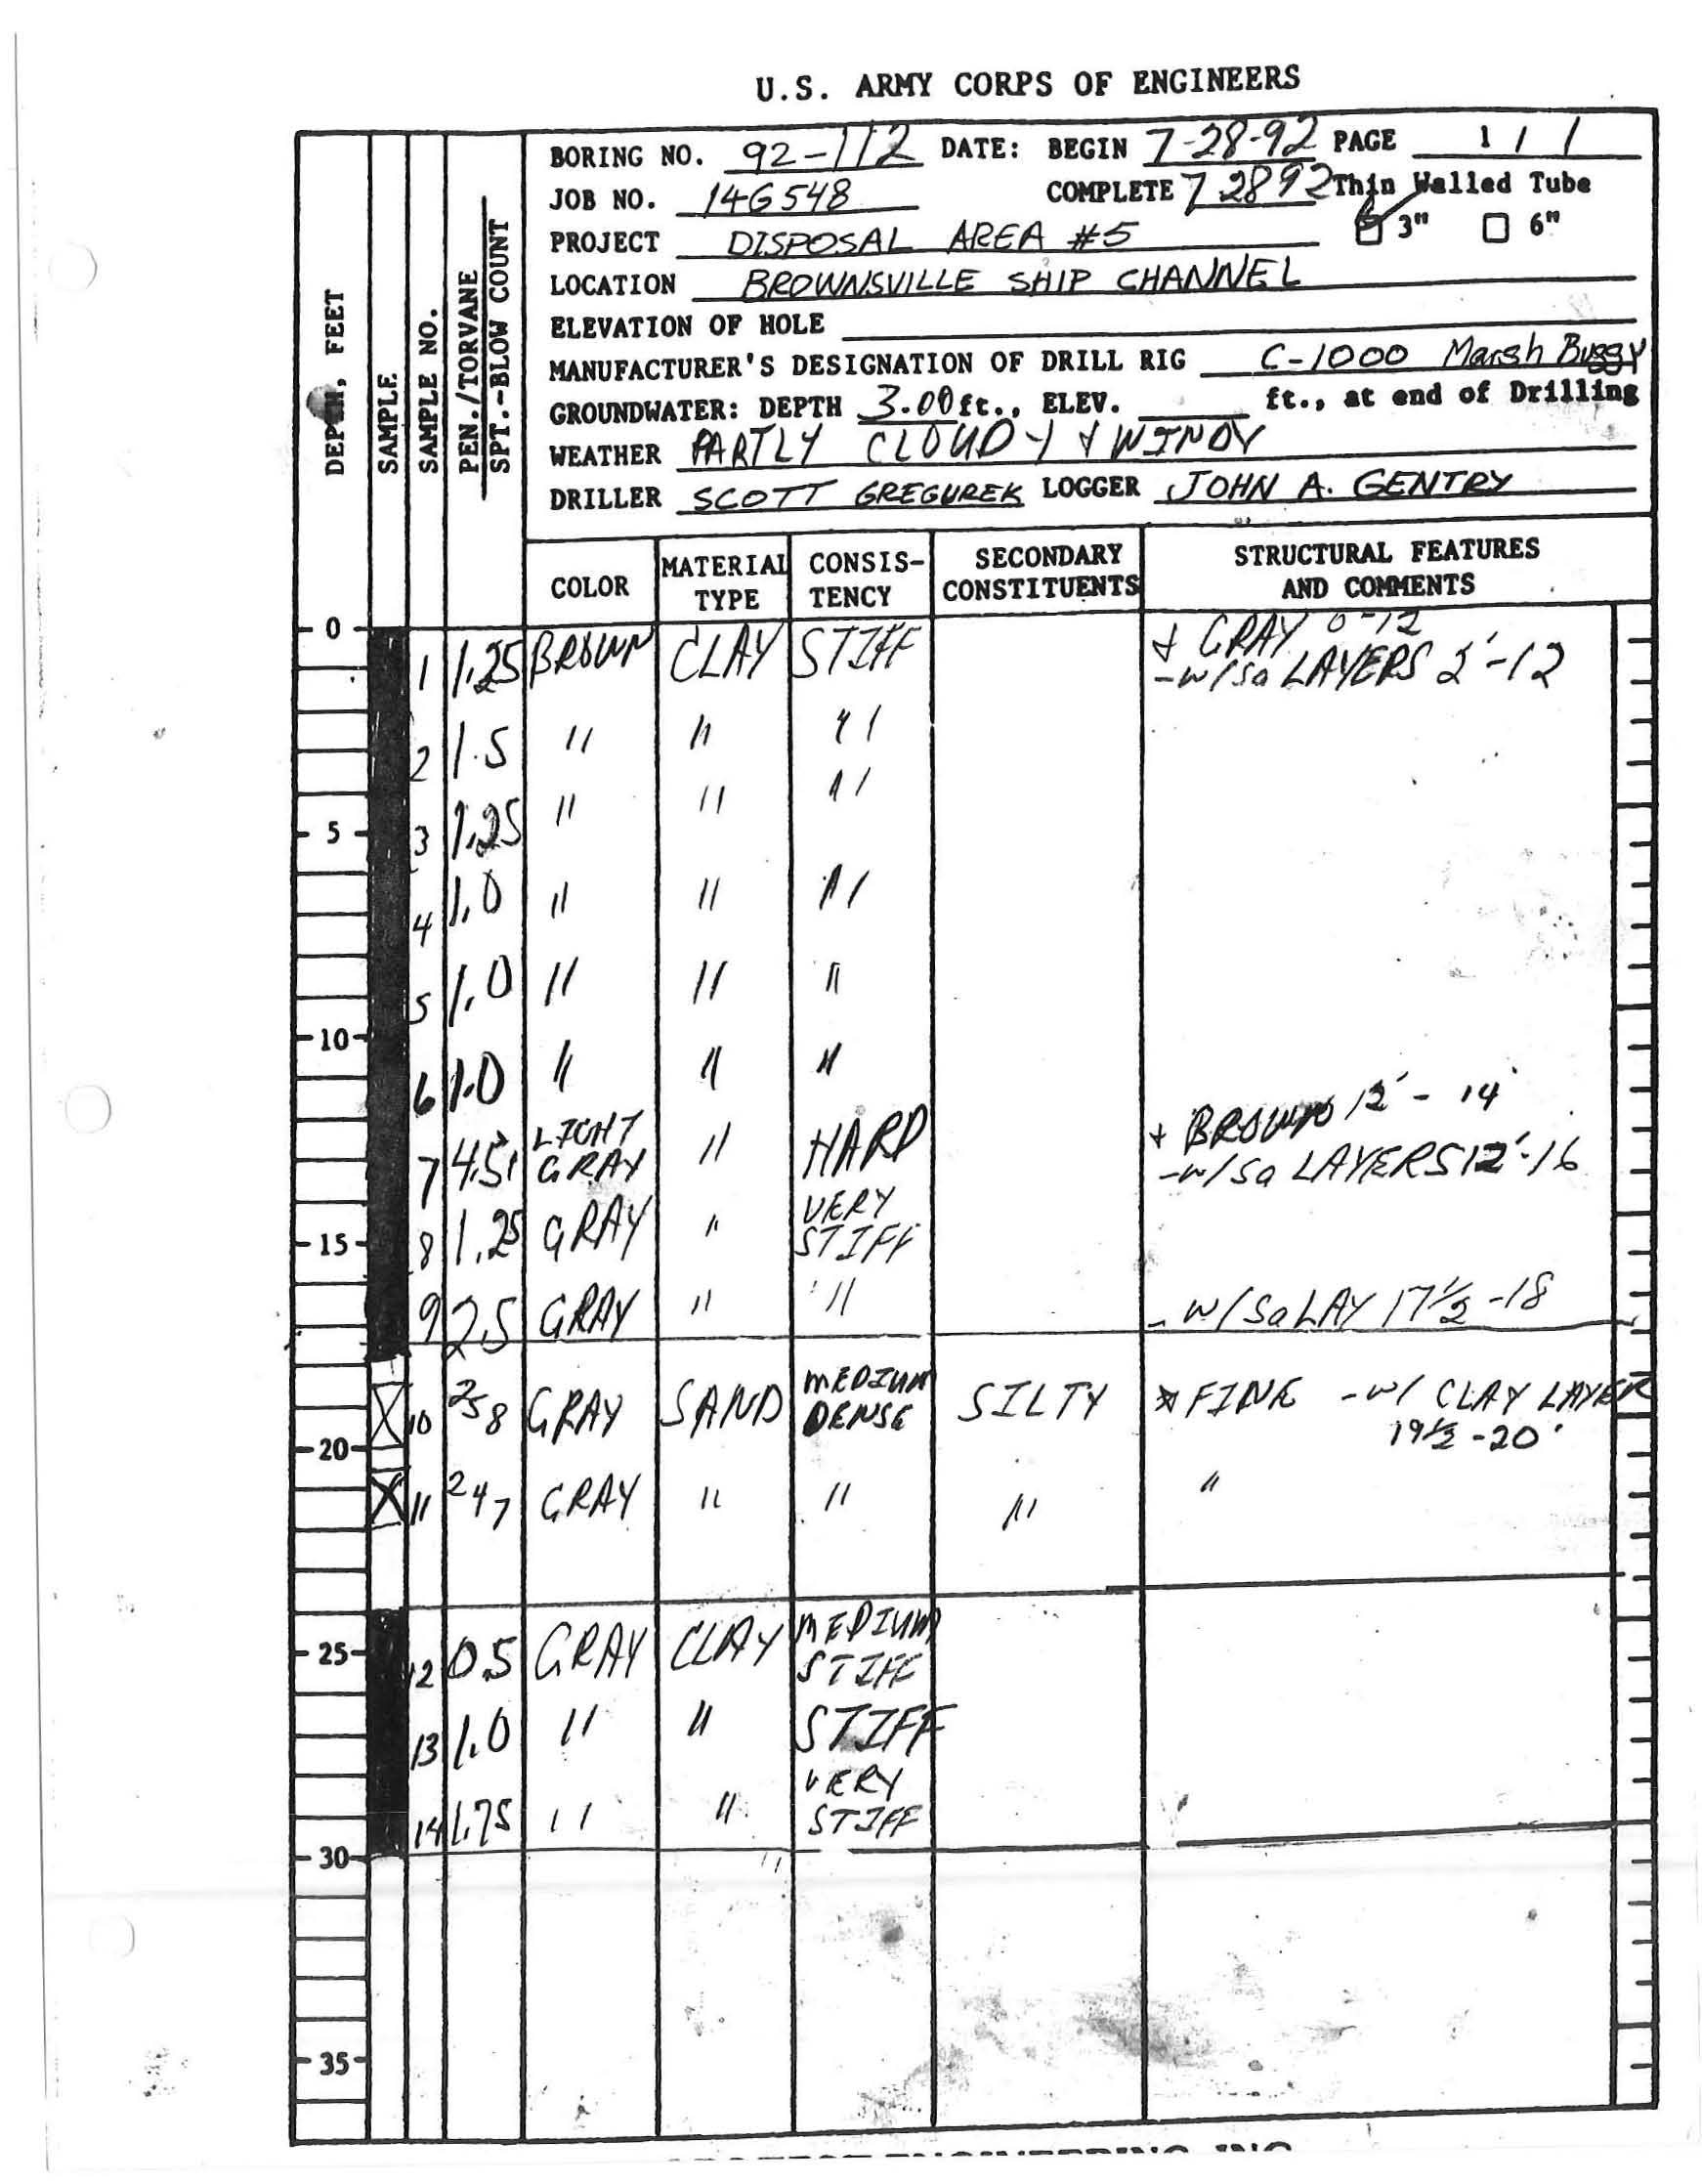 U.S. ARMY CORPS OF ENGINEERS
BORING NO. 92-112 DATE: BEGIN 7-28-92 PAGE 1 / 1
JOB NO. 14G548 COMPLETE 7 28 92 Thin Walled Tube
PROJECT DISPOSAL AREA #5 3" 6"
LOCATION BROWNSVILLE SHIP CHANNEL
ELEVATION OF HOLE
MANUFACTURER'S DESIGNATION OF DRILL RIG C-1000 Marsh Buggy
GROUNDWATER: DEPTH 3.00 ft., ELEV. ft., at end of Drilling
WEATHER PARTLY CLOUDY & WINDY
DRILLER SCOTT GREGUREK LOGGER JOHN A. GENTRY
DEPTH, FEET
SAMPLE
SAMPLE NO.
PEN./TORVANE
SPT.-BLOW COUNT
COLOR MATERIAL TYPE CONSIS-TENCY SECONDARY CONSTITUENTS STRUCTURAL FEATURES AND COMMENTS
0
+ GRAY 0-12
1 1.25 BROWN CLAY STIFF -w/Sa LAYERS 2'-12
2 1.5 " " "
5 3 1.25 " " "
4 1.0 " " "
5 1.0 " " "
10
6 1.0 " " "
+ BROWN 12'-14'
7 4.5+ LIGHT GRAY " HARD -w/Sa LAYERS 12'-16
15 8 1.25 GRAY " VERY STIFF
9 2.5 GRAY " " -w/Sa LAY 17½-18
10 2 5 8 GRAY SAND MEDIUM DENSE SILTY * FINE -w/ CLAY LAYER
20 19½-20'
11 2 4 7 GRAY " " " "
25 12 0.5 GRAY CLAY MEDIUM STIFF
13 1.0 " " STIFF
14 1.75 " " VERY STIFF
30
35